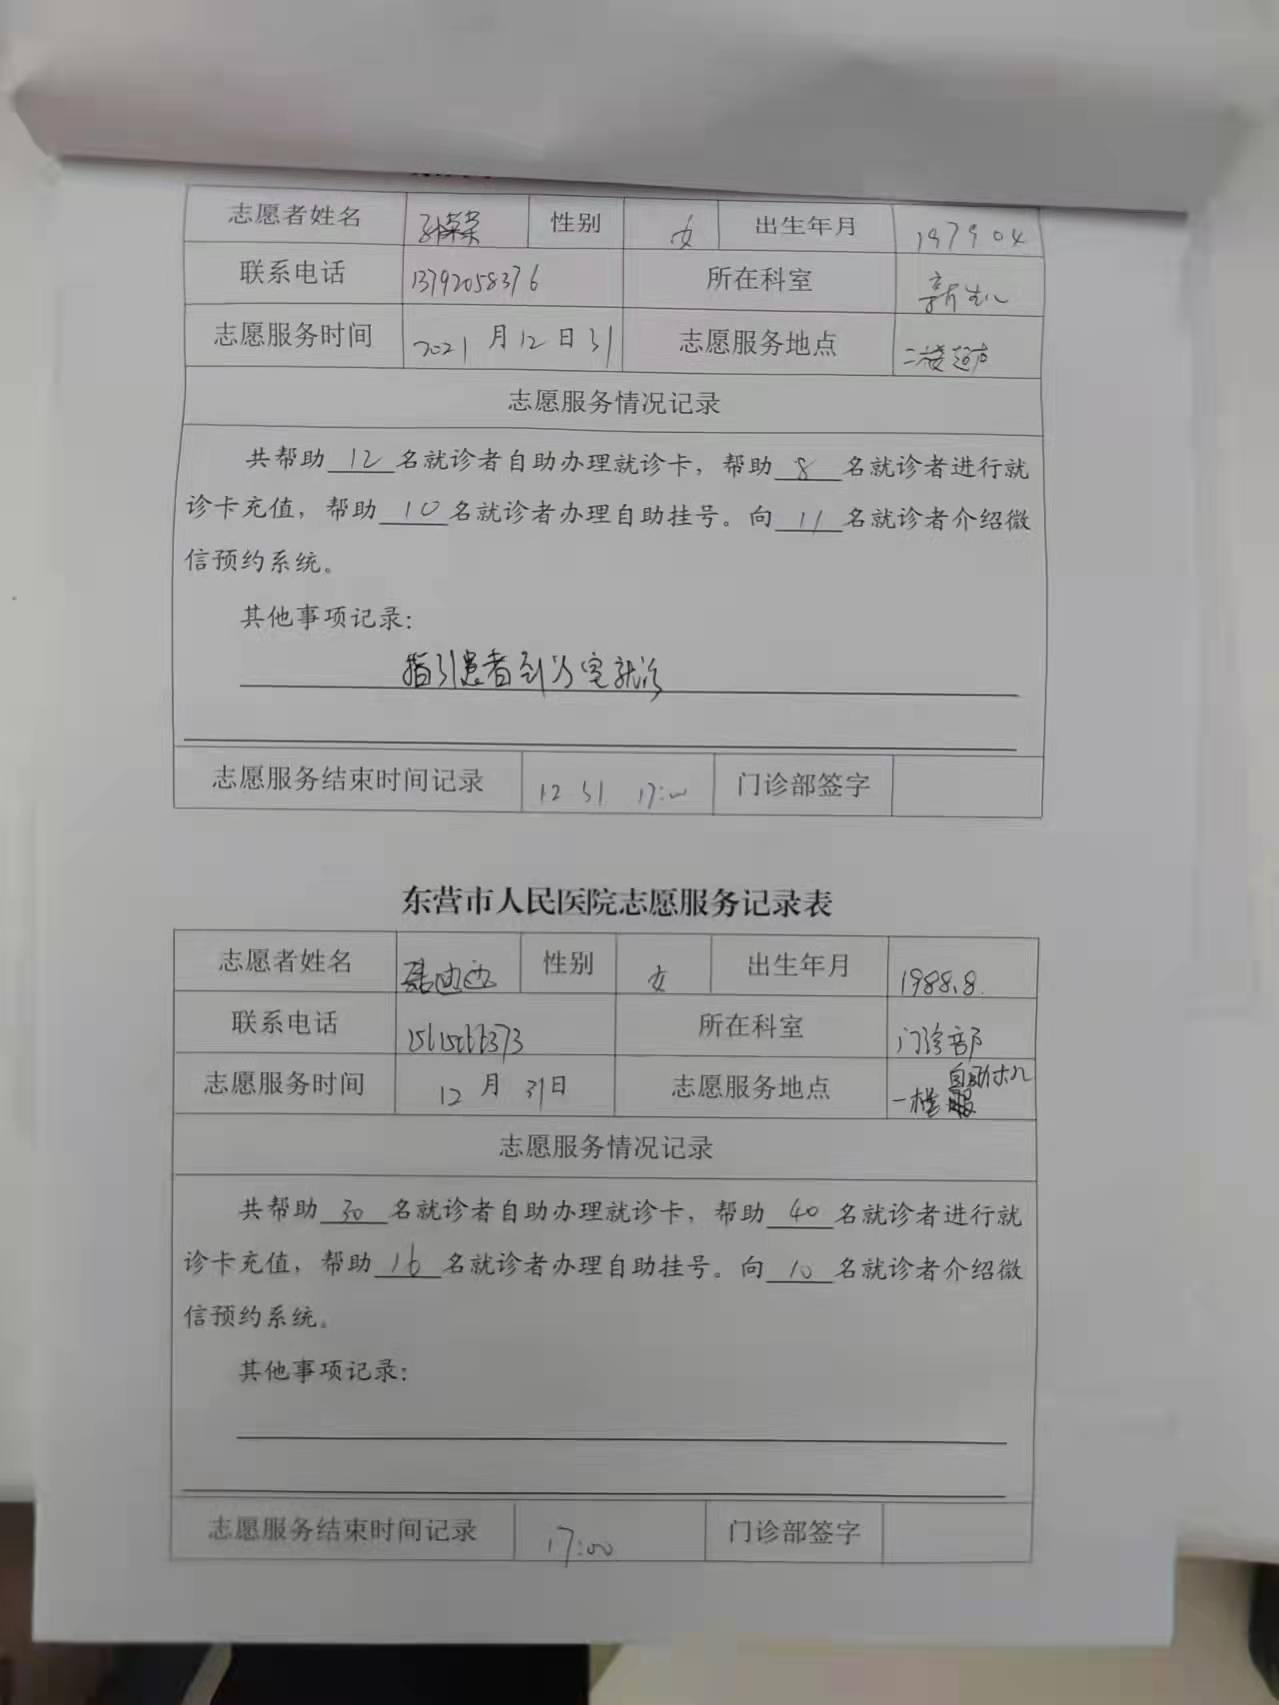 志愿者姓名 孙荣荣 性别 女 出生年月 197904
联系电话 13792058376 所在科室 新生儿
志愿服务时间 2021 月 12 日 31 志愿服务地点 二楼超声
志愿服务情况记录
共帮助 12 名就诊者自助办理就诊卡，帮助 8 名就诊者进行就
诊卡充值，帮助 10 名就诊者办理自助挂号。向 11 名就诊者介绍微
信预约系统。
其他事项记录：
指引患者到诊室就诊
志愿服务结束时间记录 12 31 17:00 门诊部签字
东营市人民医院志愿服务记录表
志愿者姓名 性别 女 出生年月 1988.8.
联系电话 所在科室 门诊部
志愿服务时间 12 月 31日 志愿服务地点 一楼 自助机
志愿服务情况记录
共帮助 30 名就诊者自助办理就诊卡，帮助 40 名就诊者进行就
诊卡充值，帮助 16 名就诊者办理自助挂号。向 10 名就诊者介绍微
信预约系统。
其他事项记录：
志愿服务结束时间记录 17:00 门诊部签字